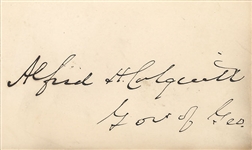 Alfred H. Colquitt
Gov of Geo.